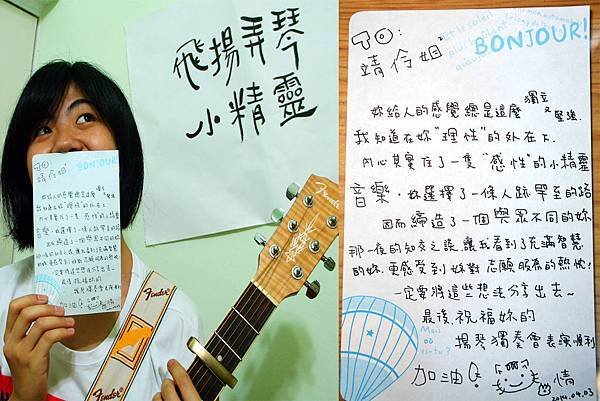 飛揚弄琴
小精靈
Fender
Fender
Fender
TO:
靖伶姐
BONJOUR!
TO:
靖伶姐
BONJOUR!
妳給人的感覺總是這麼獨立又堅強。
我知道在妳"理性"的外在下.
內心其實住了一隻"感性"的小精靈
音樂.妳選擇了一條人跡罕至的路
因而締造了一個與眾不同的妳
那一夜的知交之談.讓我看到了充滿智慧
的妳.更感受到妳對志願服務的熱忱!
一定要將這些想法分享出去~
最後.祝福妳的
揚琴獨奏會表演順利
加油!
情
2014.04.03
Mais
où
es-tu?